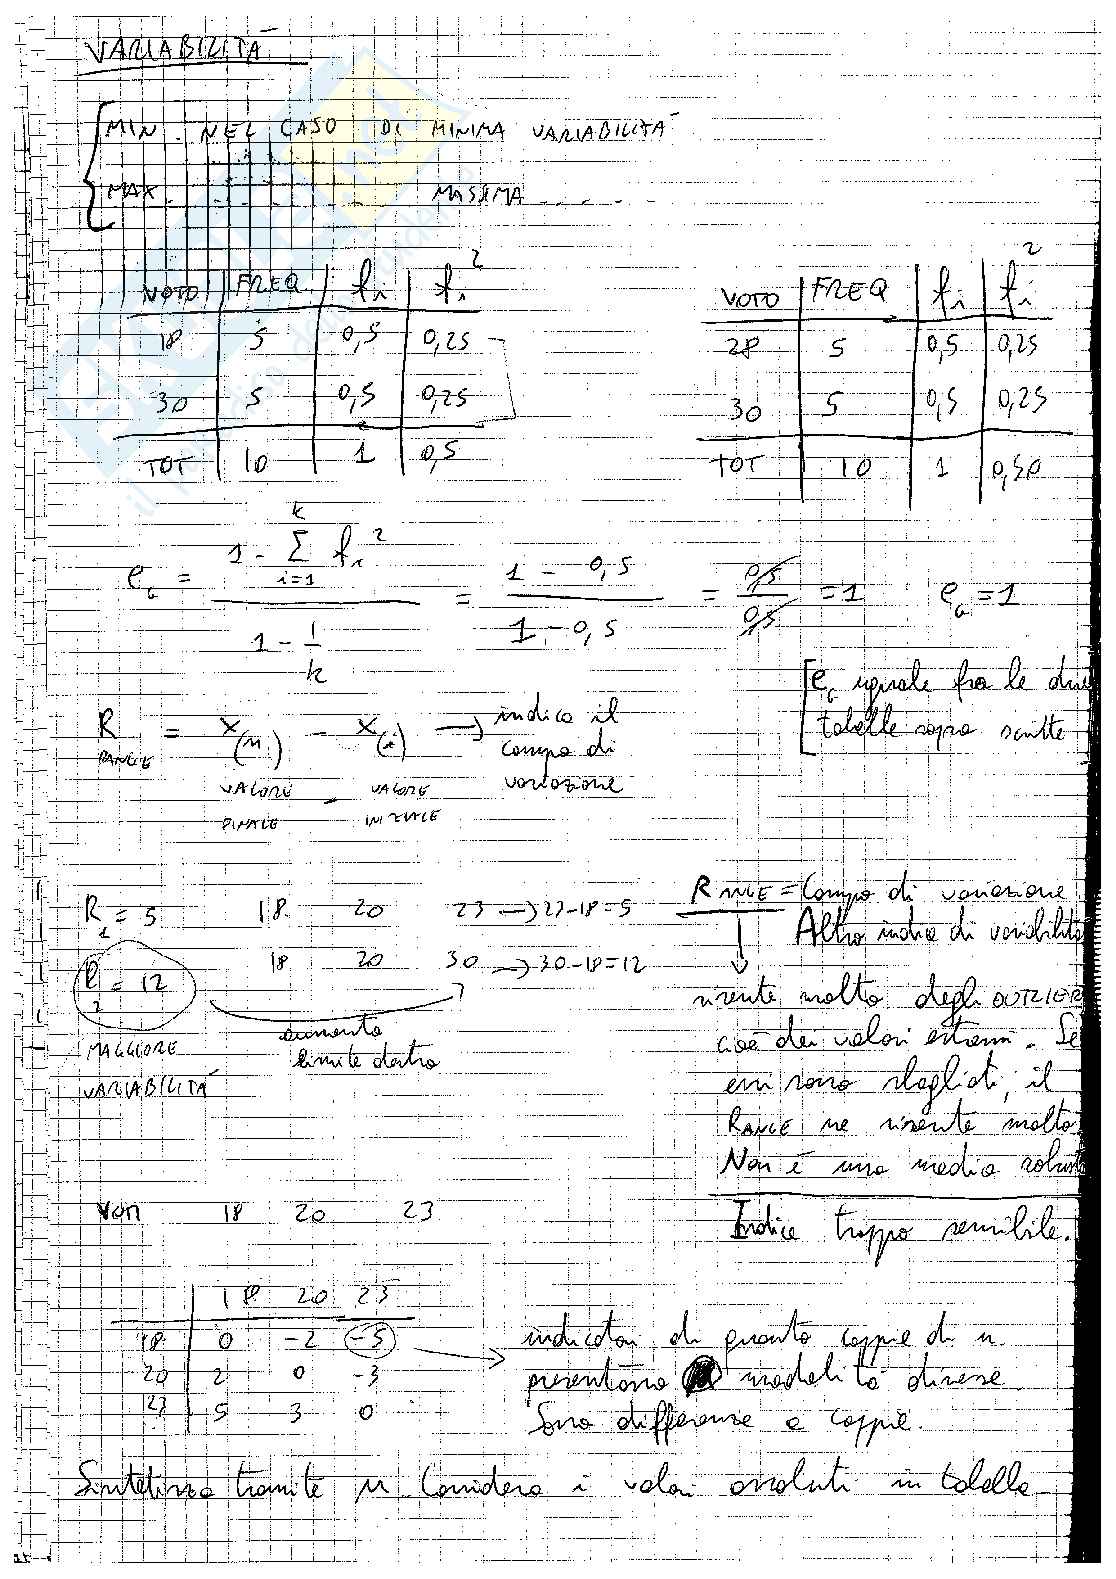 VARIABILITÀ
MIN. NEL CASO DI MINIMA VARIABILITÀ
MAX. . . . . . . . MASSIMA . . . . .
VOTO FREQ fi fi²
18 5 0,5 0,25
30 5 0,5 0,25
TOT 10 1 0,5
VOTO FREQ fi fi²
28 5 0,5 0,25
30 5 0,5 0,25
TOT 10 1 0,50
eG = (1 - Σ(i=1→k) fi²) / (1 - 1/k) = (1 - 0,5) / (1 - 0,5) = 0,5/0,5 = 1 eG = 1
[eG uguale fra le due
tabelle sopra scritte
R = X(n) - X(i) → indica il
RANGE campo di
VALORE - VALORE variazione
FINALE INIZIALE
R1 = 5 18 20 23 → 23-18=5
R2 = 12 18 20 30 → 30-18=12
MAGGIORE aumento
VARIABILITÀ limite destro
RANGE = Campo di variazione
Altro indice di variabilità
risente molto degli OUTLIER
cioè dei valori estremi. Se
essi sono sbagliati, il
RANGE ne risente molto
Non è una media robusta
Indice troppo sensibile.
Voti 18 20 23
18 20 23
18 0 -2 -5
20 2 0 -3
23 5 3 0
indicatori di quanto coppie di n
presentano modalità diverse
Sono differenze a coppie.
Sintetizzo tramite μ Considero i valori assoluti in tabella